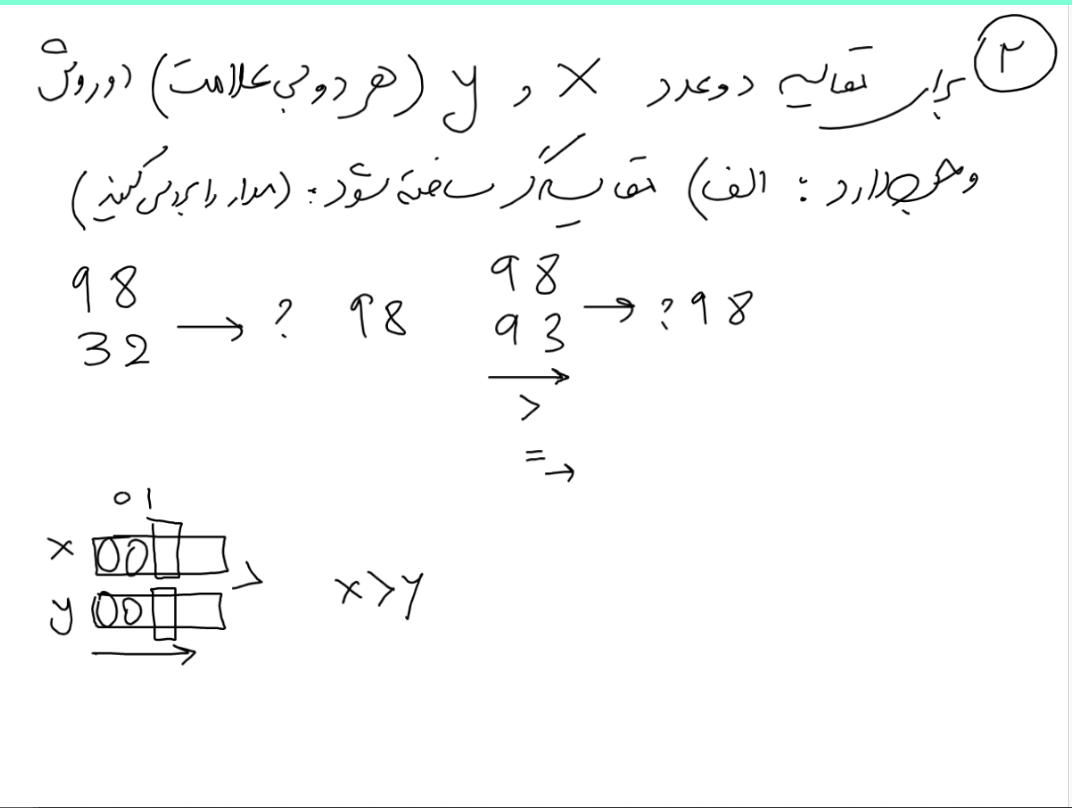 ۲ برای مقایسه دو عدد x و y (هر دو بی علامت) دو روش
وجود دارد : الف) مقایسه گر ساخته شود. (مدار را بررسی کنید)
98 98
32 → ? 98 93 → ? 98
→
>
= →
0 1
x 00 > x>y
y 00
→